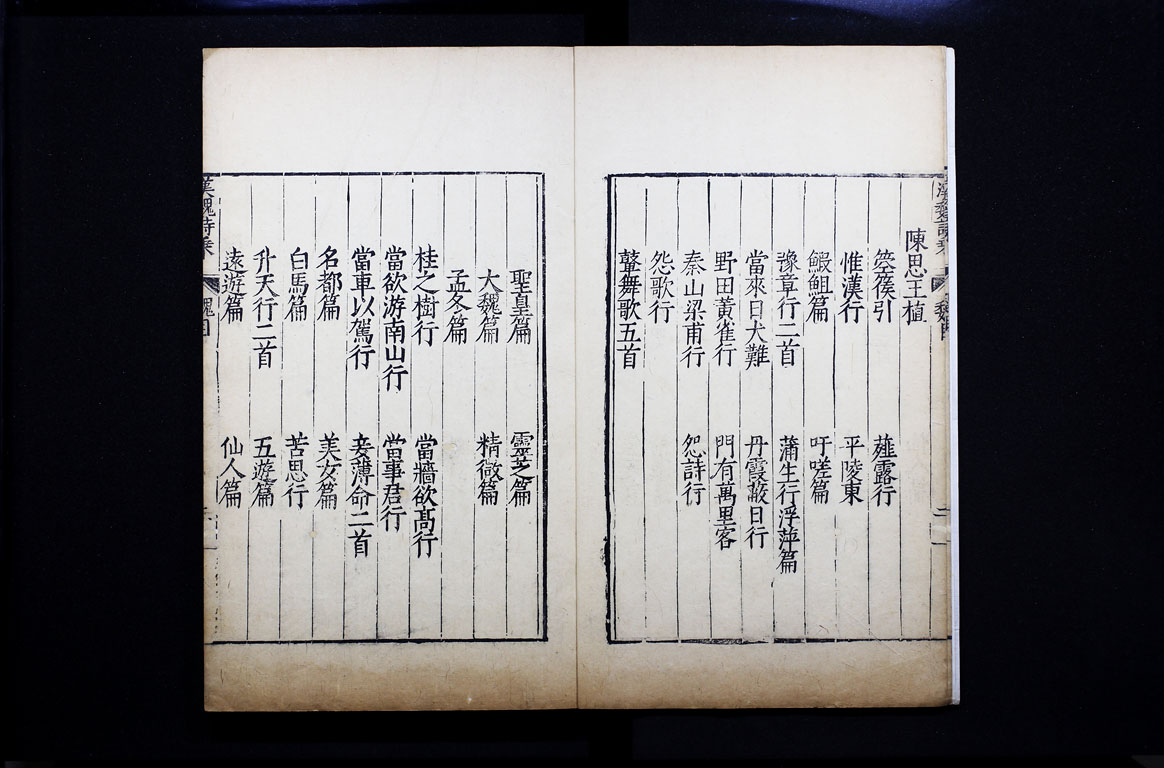 陳思王植
箜篌引 薤露行
惟漢行 平陵東
鰕䱇篇 吁嗟篇
豫章行二首 蒲生行浮萍篇
當來日大難 丹霞蔽日行
野田黃雀行 門有萬里客
秦山梁甫行 怨詩行
怨歌行
鼙舞歌五首
聖皇篇 靈芝篇
大魏篇 精微篇
孟冬篇
桂之樹行 當牆欲髙行
當欲游南山行 當事君行
當車以駕行 妾薄命二首
名都篇 美女篇
白馬篇 苦思行
升天行二首 五遊篇
遠遊篇 仙人篇
漢魏詩乗 魏目